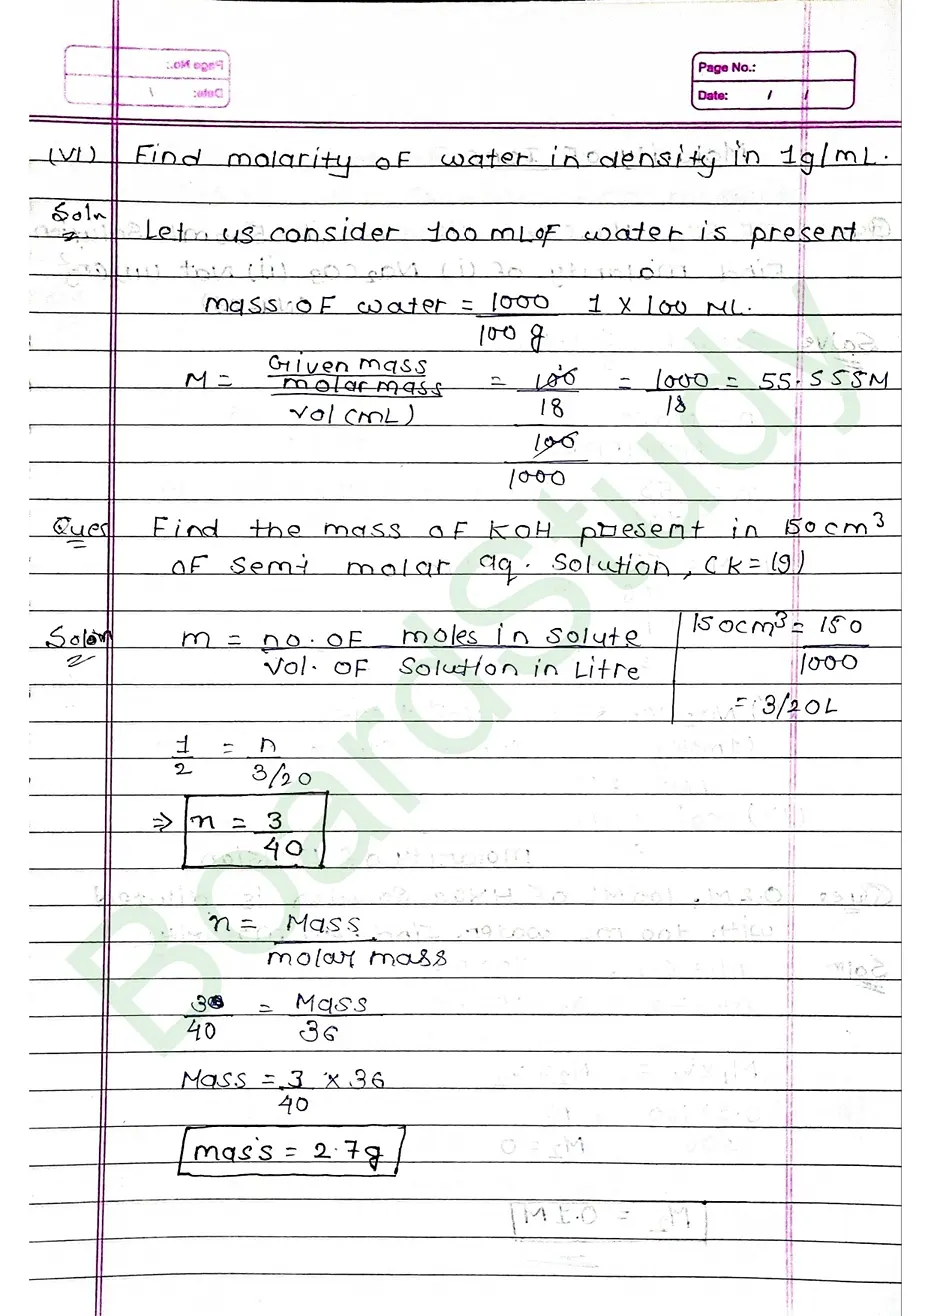 Page No.:
Date: / /
(VI) Find molarity of water in density in 1g/mL.
Soln Let us consider 100 mL of water is present
mass of water = 1000/100 g 1 X 100 ML.
M = Given mass/molar mass/vol (mL) = 100/18/100/1000 = 1000/18 = 55.555M
Ques Find the mass of KOH present in 150cm³
of semi molar aq. solution, (K = 19)
Soln m = no. of moles in solute/Vol. of solution in Litre
150cm³ = 150/1000
= 3/20L
1/2 = n/3/20
⇒ n = 3/40
n = Mass/molar mass
3/40 = Mass/36
Mass = 3/40 × 36
mass = 2.7g
BoardStudy